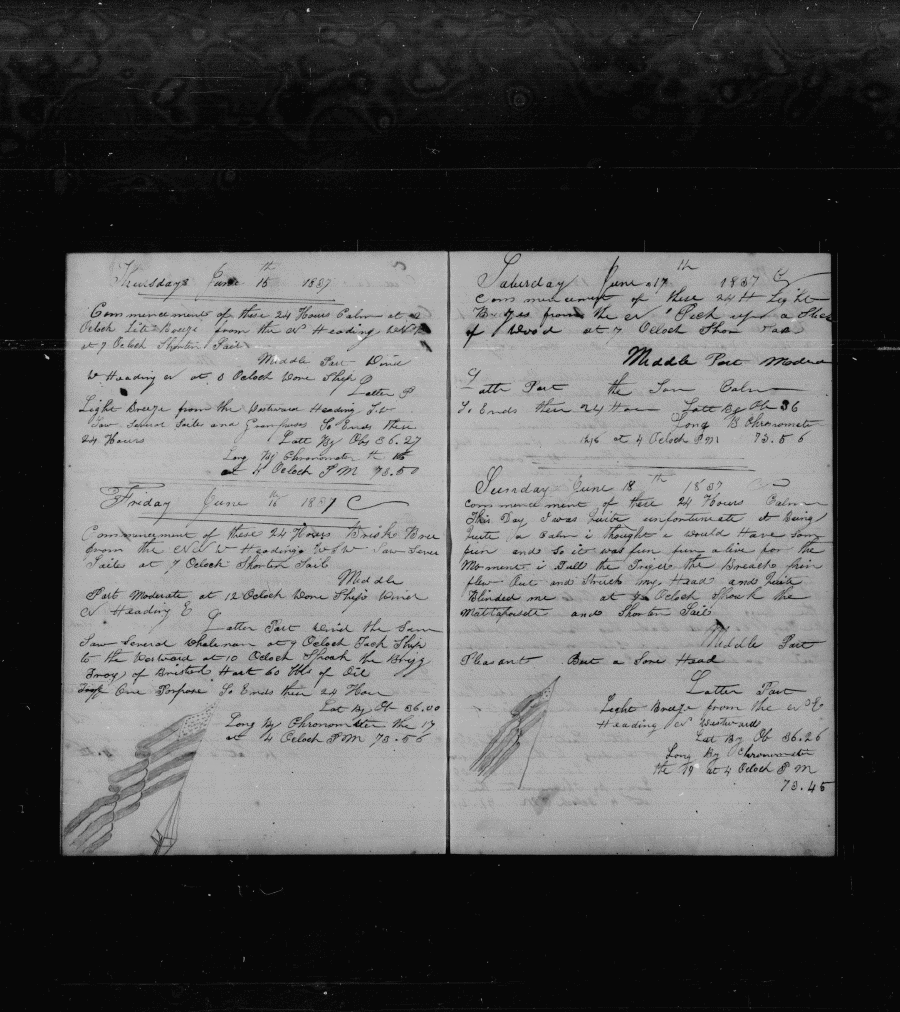 Thursday June 15th 1837
Commencement of these 24 Hours Calm at 2
Ocloch Lite Breeze from the N Heading WN
at 7 Ocloch Shorten Sail
Middle Part Wind
W Heading N at 8 Ocloch Wore Ship
Latter P
Light Breeze from the Westward Heading SW
Saw Several Sailes and Grampuses So Ends these
24 Hours Latt By Obs 36.27
Long By Chronometer th 16
at 4 Ocloch P M 73.50
Friday June 16th 1837
Commencement of these 24 Hours Brisk Bree
from the N W Heading W S W Saw Sever
Sails at 7 Ocloch Shorten Sail
Middle
Part Moderate at 12 Ocloch Wore Ship Wind
N Heading E
Latter Part Wind the Sam
Saw Several Whaleman at 9 Ocloch Tack Ship
to the Westward at 10 Ocloch Spoak the Brigg
Troy of Bristol Hart 60 bbls of Oil
One Porpose So Ends these 24 Hour
Lat By Ob 36.00
Long By Chronometer the 17
at 4 Ocloch P M 73.56
Saturday June 17th 1837
Commencement of these 24 H Light
Brezes from the N Peek up a Stick
of Wood at 7 Ocloch Shor Saa
Middle Part Modera
Latter Part the Sam Calm
So Ends these 24 Hour Latt By Ob 36
Long B Chronomete
at 4 Ocloch P M 73.56
Sunday June 18th 1837
Commencement of these 24 Hours Calm
This Day I was Quite unfortunate it Being
Quite a Calm i thought i would Have some
fun and So it was fun fun alive for the
Moment i Pull the Triger the Breach pin
flew Out and Struck my Head and Quite
Blinded me at Ocloch Spoak the
Mattapoisett and Shorten Sail
Middle Part
Pleasant But a Sore Head
Latter Part
Light Breeze from the N E
Heading N Westward
Lat By Ob 36.26
Long By Chronometer
the 19 at 4 Ocloch P M
73.45